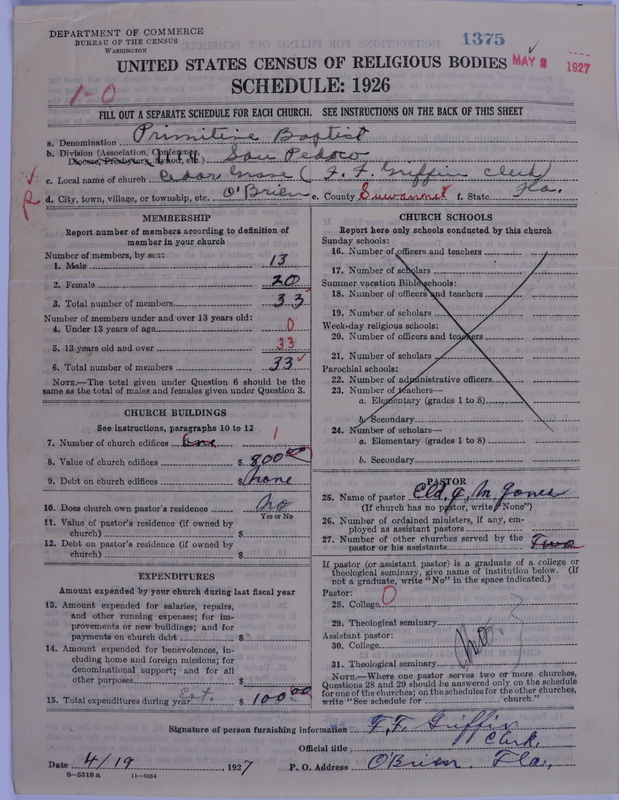 DEPARTMENT OF COMMERCE
BUREAU OF THE CENSUS
WASHINGTON
1375
MAY 2 1927
UNITED STATES CENSUS OF RELIGIOUS BODIES
SCHEDULE: 1926
1-0
FILL OUT A SEPARATE SCHEDULE FOR EACH CHURCH. SEE INSTRUCTIONS ON THE BACK OF THIS SHEET
a. Denomination Primitive Baptist
b. Division (Association, Conference, Diocese, Presbytery, Synod, etc.) San Pedoco
c. Local name of church Cedar Grove (F. F. Griffin Clerk)
d. City, town, village, or township, etc. O'Brien e. County Suwannee f. State Fla.
MEMBERSHIP
Report number of members according to definition of member in your church
Number of members, by sex:
1. Male 13
2. Female 20
3. Total number of members 33
Number of members under and over 13 years old:
4. Under 13 years of age 0
5. 13 years old and over 33
6. Total number of members 33
NOTE.—The total given under Question 6 should be the same as the total of males and females given under Question 3.
CHURCH BUILDINGS
See instructions, paragraphs 10 to 12
7. Number of church edifices One 1
8. Value of church edifices $ 800.00
9. Debt on church edifices $ none
10. Does church own pastor's residence No
Yes or No
11. Value of pastor's residence (if owned by church) $
12. Debt on pastor's residence (if owned by church) $
EXPENDITURES
Amount expended by your church during last fiscal year
13. Amount expended for salaries, repairs, and other running expenses; for improvements or new buildings; and for payments on church debt $
14. Amount expended for benevolences, including home and foreign missions; for denominational support; and for all other purposes $
15. Total expenditures during year Est. $ 100.00
CHURCH SCHOOLS
Report here only schools conducted by this church
Sunday schools:
16. Number of officers and teachers
17. Number of scholars
Summer vacation Bible schools:
18. Number of officers and teachers
19. Number of scholars
Week-day religious schools:
20. Number of officers and teachers
21. Number of scholars
Parochial schools:
22. Number of administrative officers
23. Number of teachers—
a. Elementary (grades 1 to 8)
b. Secondary
24. Number of scholars—
a. Elementary (grades 1 to 8)
b. Secondary
PASTOR
25. Name of pastor Eld. J. M. Jones
(If church has no pastor, write "None")
26. Number of ordained ministers, if any, employed as assistant pastors
27. Number of other churches served by the pastor or his assistants Two
If pastor (or assistant pastor) is a graduate of a college or theological seminary, give name of institution below. (If not a graduate, write "No" in the space indicated.)
Pastor:
28. College 0
29. Theological seminary
Assistant pastor: No.
30. College
31. Theological seminary
NOTE.—Where one pastor serves two or more churches, Questions 28 and 29 should be answered only on the schedule for one of the churches; on the schedules for the other churches, write "See schedule for church."
Signature of person furnishing information F. F. Griffin
Official title Clerk.
Date 4/19, 1927 P. O. Address O'Brien. Fla.
8-5518 a 11-9354